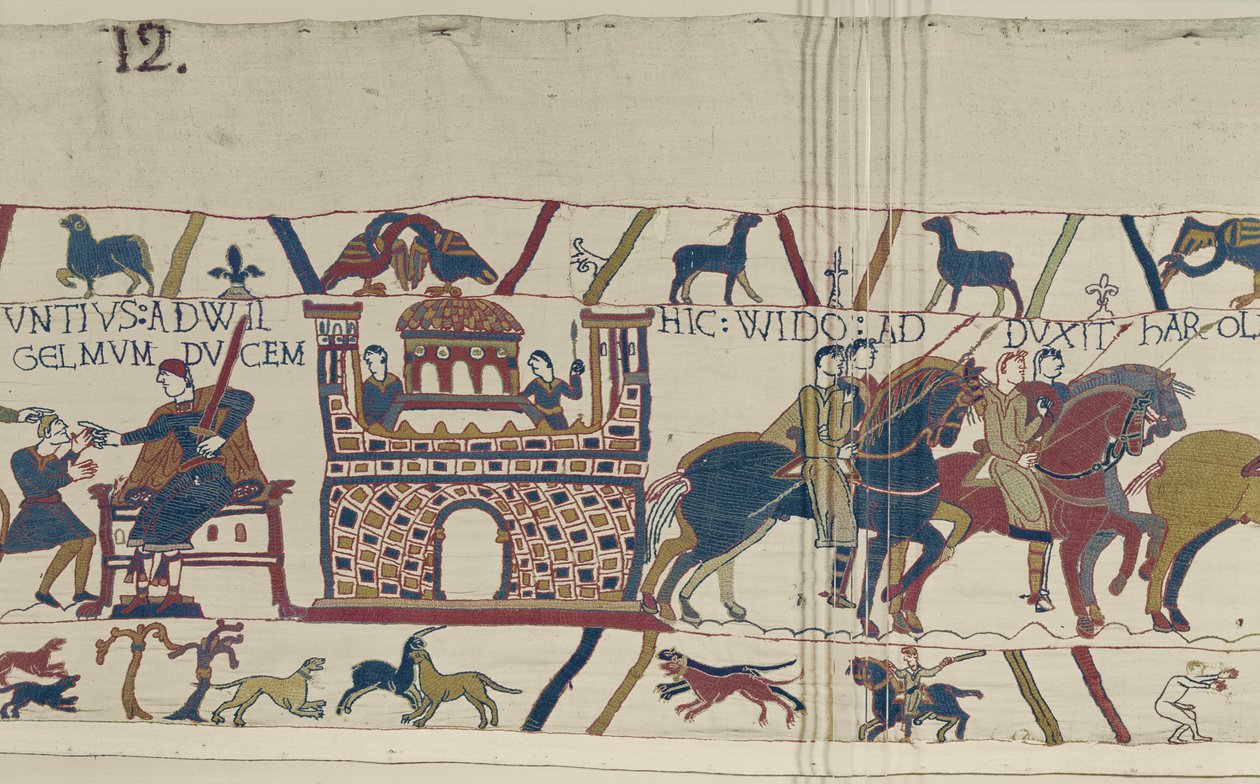 12.
VNTIVS: AD WIL
GELMVM DVCEM
HIC: WIDO: AD DVXIT hAROL